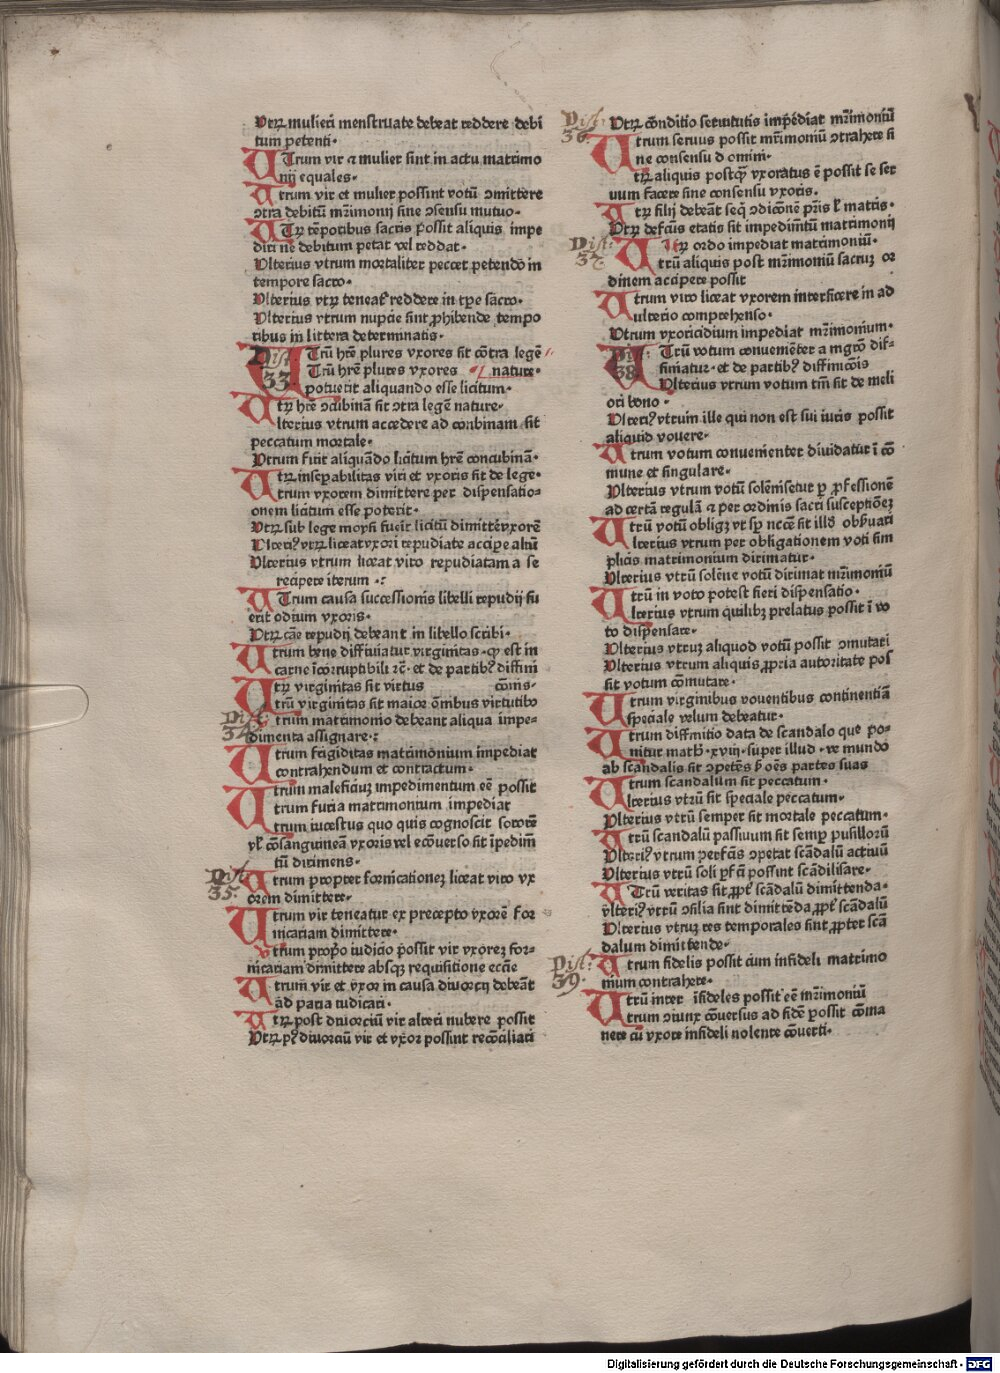 Vtrꝝ mulieri menstruate debeat reddere debi
tum petenti·
UTrum vir ⁊ mulier sint in actu matrimo
nij equales·
Utrum vir et mulier possint votū ↄmittere
ↄtra debitū mr̄imonij sine ↄsensu mutuo·
UTꝝ tēporibus sacris possit aliquis impe
diri ne debitum petat vel reddat·
Vlterius vtrum mortaliter peccet petendo in
tempore sacro·
Vlterius vtꝝ teneat᷑ reddere in tꝑe sacro·
Vlterius vtrum nupcie sint ꝓhibende tempo
ribus in littera determinatis·
Dist: 33
UTrū hr̄e plures vxores sit cōtra legē
Trū hr̄e plures vxores nature·
potuerit aliquando esse licitum·
Utꝝ hr̄e ↄcubinā sit ↄtra legē nature·
lterius vtrum accedere ad conbinam sit
peccatum mortale·
Vtrum fuit aliquādo licitum hr̄e concubinā·
Utꝝ inseꝑabilitas viri et vxoris sit de lege·
trum vxorem dimittere per dispensatio-
onem licitum esse poterit·
Vtꝝ sub lege moysi fuerit licitū dimittē vxorē
Vlteriꝰ vtꝝ liceat vxori repudiate accipe aliū
Vlterius vtrum liceat viro repudiatam a se
recipere iterum ·:
UTrum causa successionis libelli repudij fu
erit odium vxoris·
Vtꝝ cāe repudij debeant in libello scribi·
Utrum bene diffiniatur virginitas· ꝙ est in
carne īcorruptibili ⁊c̄· et de partibꝰ diffini
Utꝝ virginitas sit virtus cōnis·
trū virginitas sit maior omībus virtutibꝰ
Dist: 34
Utrum matrimonio debeant aliqua impe-
dimenta assignare·:
Utrum frigiditas matrimonium impediat
contrahendum et contractum·
Utrum maleficiuꝫ impedimentum eē possit
Utrum furia matrimonium impediat
trum incestus quo quis cognoscit sororē
vꝉ cōsanguineā vxoris vel ecōuerso sit īpedim̄
tū dirimens·
Dist: 35.
Utrum propter fornicationeꝫ liceat viro vx
orem dimittere·
Utrum vir teneatur ex precepto vxorē for
nicariam dimittere·
Utrum propō iudicio possit vir vxoreꝫ for-
nicariam dimittere absqꝫ requisitione eccīe
Utrum vir et vxor in causa diuorcij debeāt
ad paria iudicari·
Utꝝ post diuorciū vir alteri nubere possit
Vtꝝ pꝰ diuorciū vir et vxor possint recōciliari
Dist: 36.
Vtꝝ cōnditio seruitutis impediat mr̄imoniū
Utrum seruus possit mr̄imoniū ↄtrahere si
ne consensu domini·
tꝝ aliquis postqꝫ vxoratus ē possit se ser
uum facere sine consensu vxoris·
Utꝝ filij debeāt seqͥ ↄdicōnē pr̄is vꝉ matris·
Vtꝝ defcūs etatis sit impedimētū matrimonij
Dist: 37.
Utꝝ ordo impediat matrimoniū·
trū aliquis post mr̄imoniū sacruꝫ or
dinem accipere possit
Utrum viro liceat vxorem interficere in ad
ulterio comprehenso·
Vtrum vxoricidium impediat mr̄imonium·
Dist: 38
UTrū votum conuenienter a mgr̄o dif-
finiatur· et de partibꝰ diffinicōis
Vlterius vtrum votum tm̄ sit de meli
ori bono·
Vlteriꝰ vtrum ille qui non est sui iuris possit
aliquid vouere·
Utrum votum conuenienter diuidatur ī cō
mune et singulare·
Vlterius vtrum votū solemisetur ꝑ ꝓfessionē
ad certā regulā ⁊ per ordinis sacri susceptionēꝫ
Utrū votū obligꝫ vt sꝑ nccē sit illō obẜuari
lterius vtrum per obligationem voti sim
plicis matrimonium dirimatur·
Vlterius vtrū solēne votū dirimat mr̄imoniū
Utrū in voto potest fieri dispensatio·
lterius vtrum quilibꝫ prelatus possit ī vo
to dispensare·
Vlterius vtruꝫ aliquod votū possit ↄmutari
Vlterius vtrum aliquis ꝓpria autoritate pos
sit votum cōmutare·
Utrum virginibus vouentibus continentiā
speciale velum debeatur·
Utrum diffinitio data de scandalo que po-
nitur math̄· xviij· super illud· ve mundo
ab scandalis sit ↄpetēs ꝑ oēs partes suas
Utrum scandalum sit peccatum·
lterius vtrū sit speciale peccatum·
Vlterius vtrū semper sit mortale peccatum·
Utrū scandalū passiuum sit semꝑ pusillorū
Vlteriꝰ vtrum ꝑfcīs ↄpetat scādalū actiuū
Vlterius vtrū soli ꝑfcī possint scādilisare·
UTrū veritas sit ꝓpt᷑ scādalū dimittenda·
vlteriꝰ vtrū ↄsilia sint dimittēda ꝓpt᷑ scādalū
Vlterius vtruꝫ res temporales sint ꝓpter scā
dalum dimittende·
Dist: 39.
Utrum fidelis possit cum infideli matrimo
nium contrahere·
Utrū inter īfideles possit eē mr̄imoniū
trum ↄiunx cōuersus ad fidē possit cōma
nere cū vxore infideli nolente cōuerti·
Digitalisierung gefördert durch die Deutsche Forschungsgemeinschaft - DFG